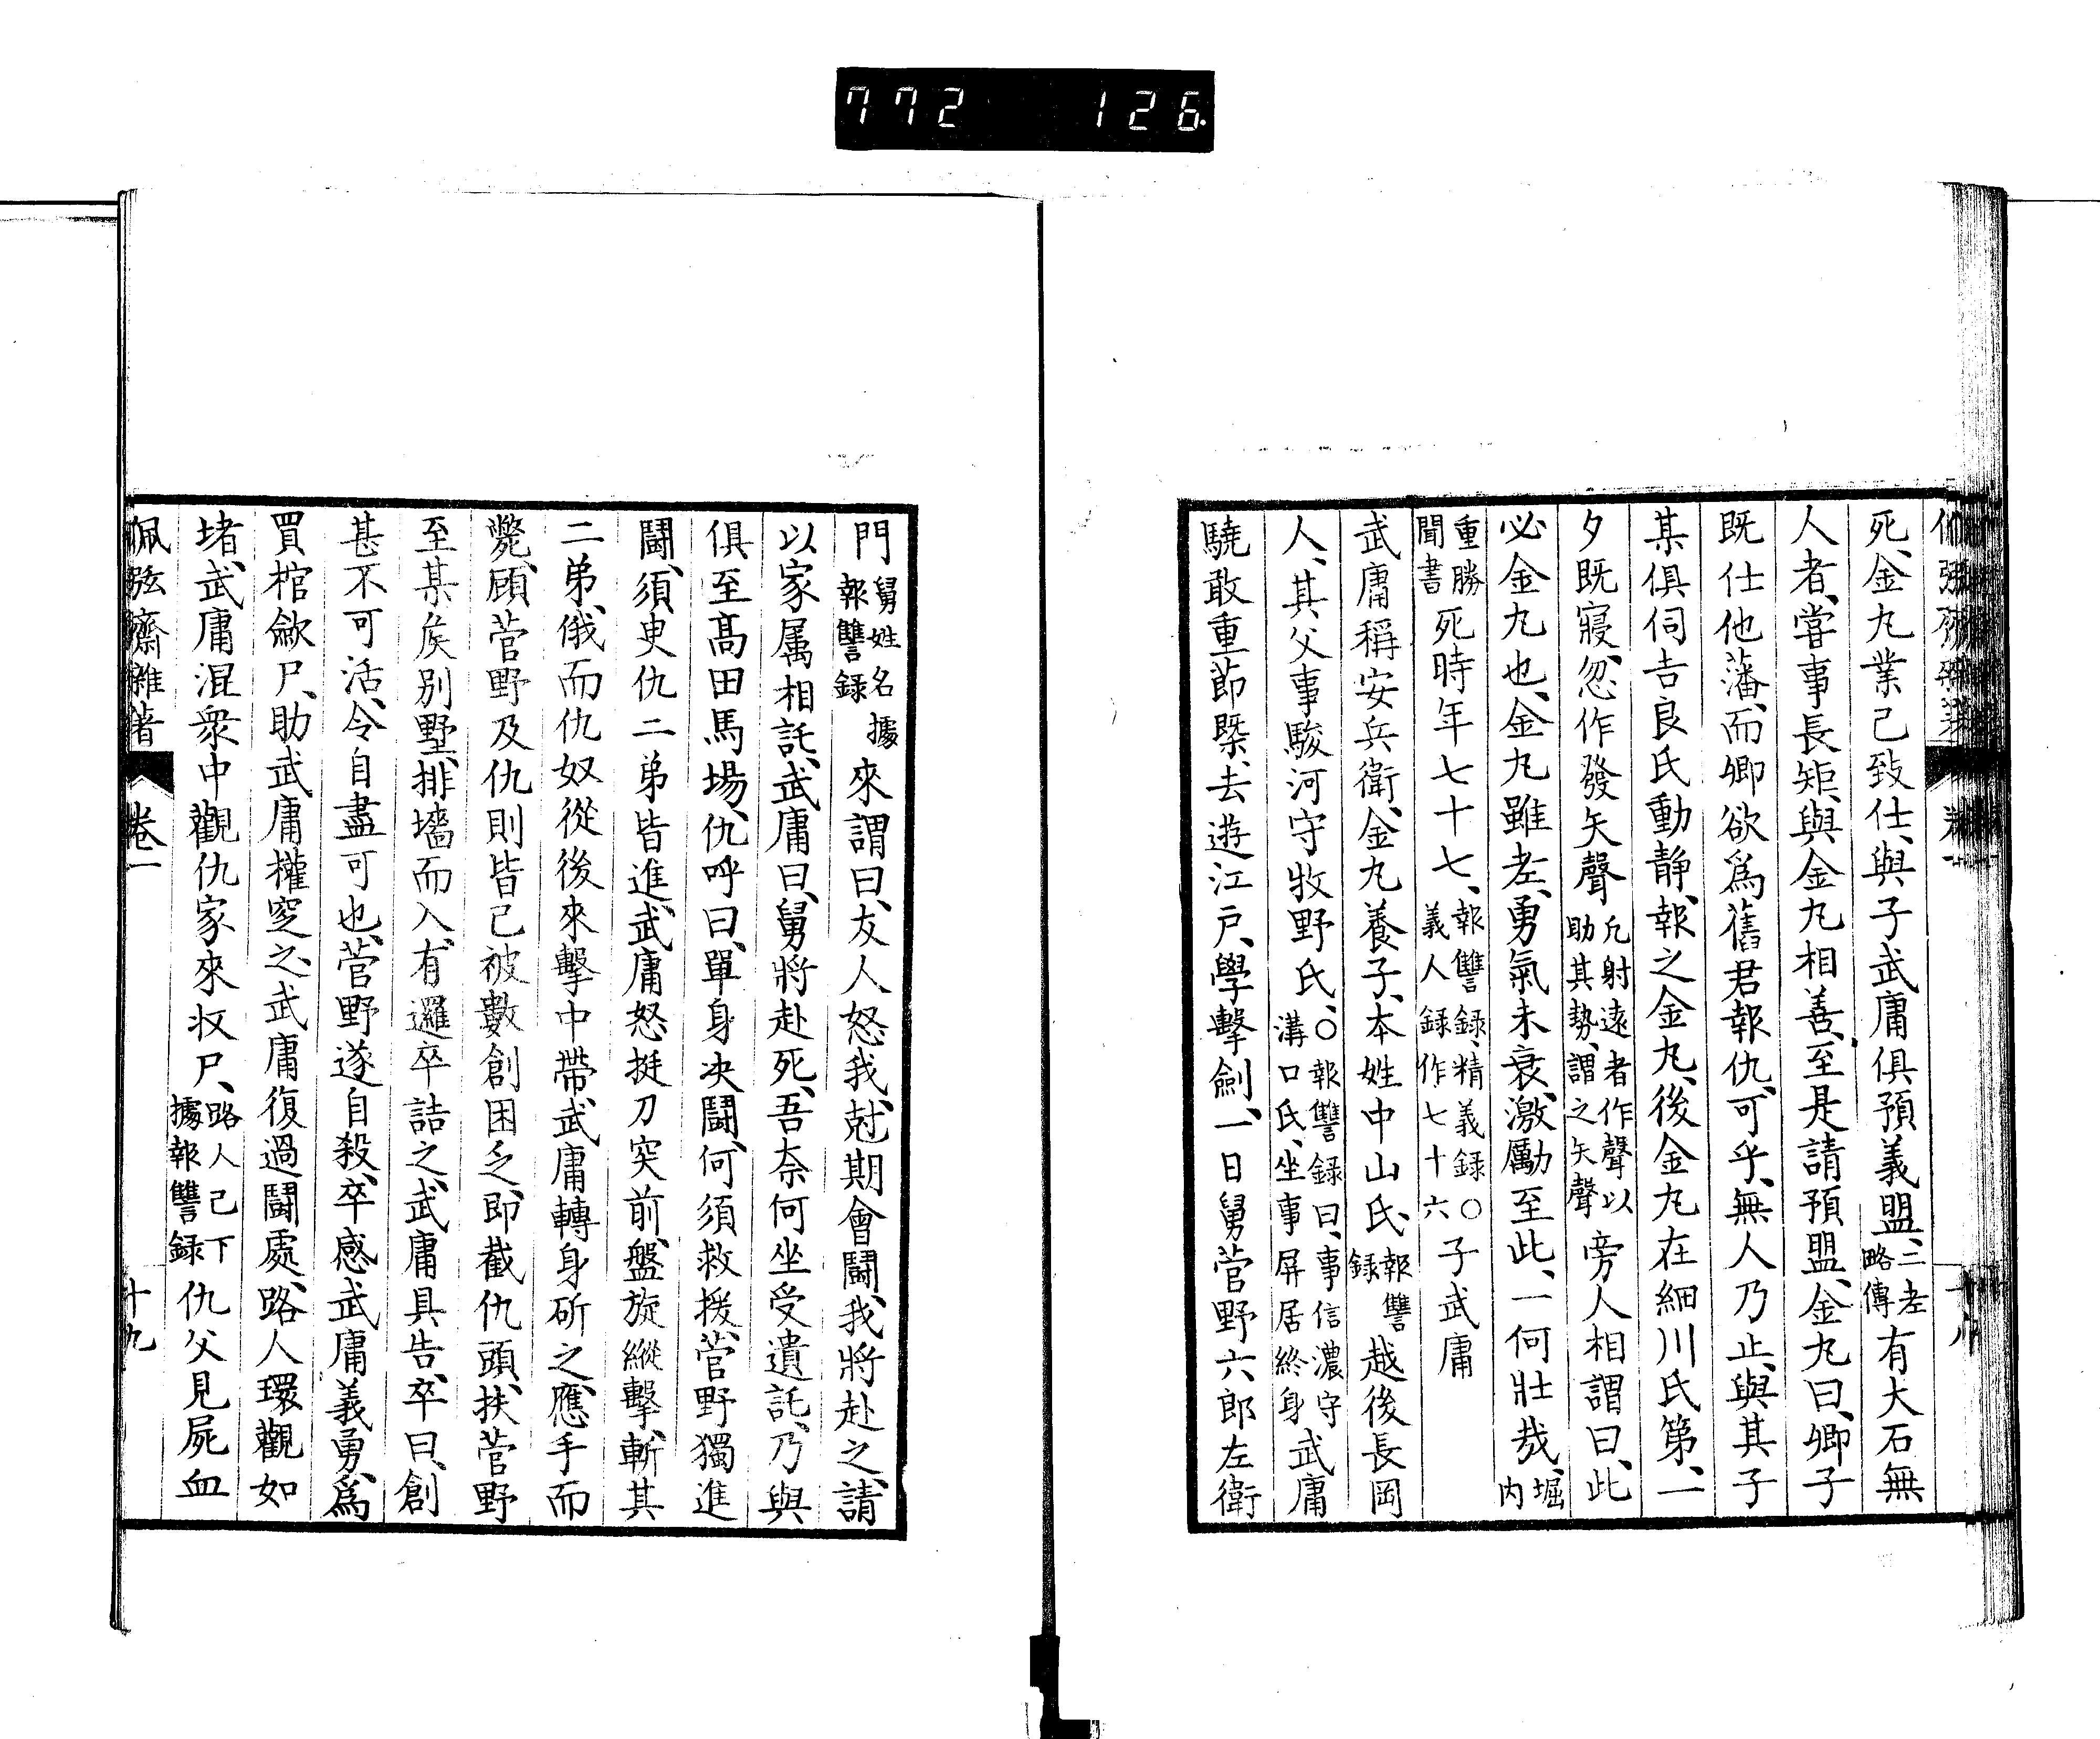 772 126
死、金丸業己致仕、與子武庸俱預義盟、二老略傳有大石無
人者、嘗事長矩、與金丸相善、至是請預盟、金丸曰、卿子
既仕他藩、而卿欲爲舊君報仇、可乎、無人乃止、與其子
某俱伺吉良氏動静、報之金丸、後金丸在細川氏第、一
夕既寢、忽作發矢聲凡射遠者作聲以助其勢、謂之矢聲旁人相謂曰、此
必金丸也、金丸雖老、勇氣未衰、激勵至此、一何壯哉、堀内
重勝聞書死時年七十七、報讐録、精義録〇義人録作七十六子武庸
武庸稱安兵衛、金丸養子、本姓中山氏、報讐録越後長岡
人、其父事駿河守牧野氏、〇報讐録曰、事信濃守溝口氏、坐事屏居終身武庸
驍敢重節槩、去遊江戸、學擊劍、一日舅菅野六郎左衛
門舅姓名據報讐録來謂曰、友人怒我、尅期會鬪、我將赴之、請
以家属相託、武庸曰、舅將赴死、吾奈何坐受遺託、乃與
俱至高田馬場、仇呼曰、單身决鬪、何須救援、菅野獨進
鬪、須臾仇二弟皆進、武庸怒挺刀突前、盤旋縱擊、斬其
二弟、俄而仇奴從後來擊中帶、武庸轉身斫之、應手而
斃、顧菅野及仇則皆己被數創困乏、即截仇頭、扶菅野
至某矦別墅、排墻而入、有邏卒詰之、武庸具告、卒曰、創
甚不可活、令自盡可也、菅野遂自殺、卒感武庸義勇、爲
買棺歛尸、助武庸權窆之、武庸復過鬪處、路人環觀如
堵、武庸混衆中觀仇家來收尸、路人己下據報讐録仇父見屍血
佩弦齋雜著 卷一 十九